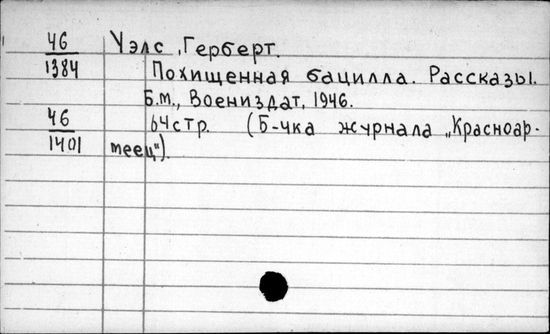 46 Уэлс, Герберт.
1384 Похищенная бацилла. Рассказы.
Б.м., Воениздат, 1946.
46 64стр. (Б-чка журнала „Красноар-
1401 меец").